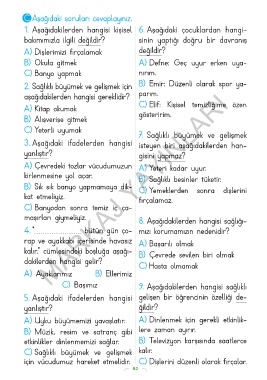 C Aşağıdaki soruları cevaplayınız.
1. Aşağıdakilerden hangisi kişisel
bakımımızla ilgili değildir?
A) Dişlerimizi fırçalamak
B) Okula gitmek
C) Banyo yapmak
2. Sağlıklı büyümek ve gelişmek için
aşağıdakilerden hangisi gereklidir?
A) Kitap okumak
B) Alışverişe gitmek
C) Yeterli uyumak
3. Aşağıdaki ifadelerden hangisi
yanlıştır?
A) Çevredeki tozlar vücudumuzun
kirlenmesine yol açar.
B) Sık sık banyo yapmamaya dik-
kat etmeliyiz.
C) Banyodan sonra temiz iç ça-
maşırları giymeliyiz.
4. "........................ bütün gün ço-
rap ve ayakkabı içerisinde havasız
kalır." cümlesindeki boşluğa aşağı-
dakilerden hangisi gelir?
A) Ayaklarımız B) Ellerimiz
C) Başımız
5. Aşağıdaki ifadelerden hangisi
yanlıştır?
A) Uyku büyümemizi yavaşlatır.
B) Müzik, resim ve satranç gibi
etkinlikler dinlenmemizi sağlar.
C) Sağlıklı büyümek ve gelişmek
için vücudumuz hareket etmelidir.
6. Aşağıdaki çocuklardan hangi-
sinin yaptığı doğru bir davranış
değildir?
A) Defne: Geç uyur erken uya-
nırım.
B) Emir: Düzenli olarak spor ya-
parım.
C) Elif: Kişisel temizliğime özen
gösteririm.
7. Sağlıklı büyümek ve gelişmek
isteyen biri aşağıdakilerden han-
gisini yapmaz?
A) Yeteri kadar uyur.
B) Sağlıklı besinler tüketir.
C) Yemeklerden sonra dişlerini
fırçalamaz.
8. Aşağıdakilerden hangisi sağlığı-
mızı korumamızın nedenidir?
A) Başarılı olmak
B) Çevrede sevilen biri olmak
C) Hasta olmamak
9. Aşağıdakilerden hangisi sağlıklı
gelişen bir öğrencinin özelliği de-
ğildir?
A) Dinlenmek için gerekli etkinlik-
lere zaman ayırır.
B) Televizyon karşısında saatlerce
kalır.
C) Dişlerini düzenli olarak fırçalar.
62